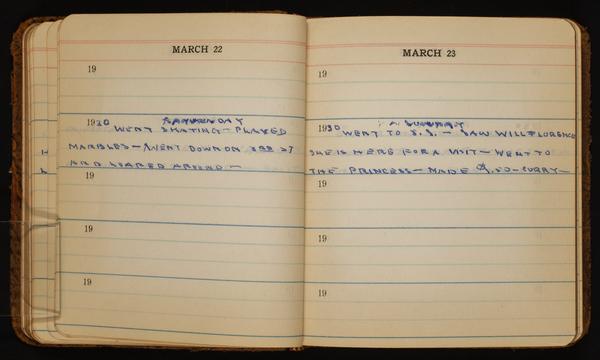 MARCH 22
19
1930 SATURDAY
WENT SKATING - PLAYED
MARBLES - WENT DOWN ON
AND LOAFED AROUND -
19
19
19
MARCH 23
19
1930 SUNDAY
WENT TO S.S. - SAW WILL + FLORENCE
SHE IS HERE FOR A VISIT - WENT TO
THE PRINCESS - MADE
19
19
19